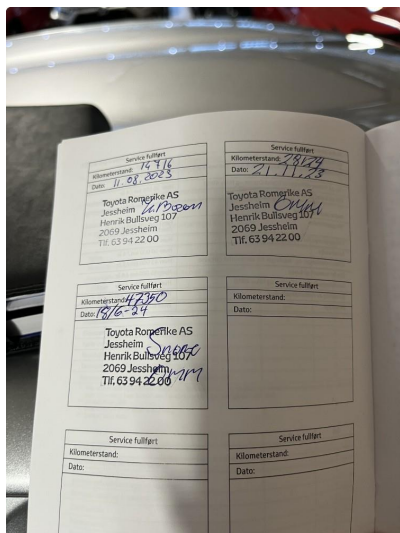 Service fullført
Kilometerstand: 14716
Dato: 11.08.2023
Toyota Romerike AS
Jessheim
Henrik Bullsveg 107
2069 Jessheim
Tlf. 63 94 22 00
Service fullført
Kilometerstand: 28124
Dato: 21.11.23
Toyota Romerike AS
Jessheim
Henrik Bullsveg 107
2069 Jessheim
Tlf. 63 94 22 00
Service fullført
Kilometerstand: 47350
Dato: 18/6-24
Toyota Romerike AS
Jessheim
Henrik Bullsveg 107
2069 Jessheim
Tlf. 63 94 22 00
Service fullført
Kilometerstand:
Dato:
Service fullført
Kilometerstand:
Dato:
Service fullført
Kilometerstand:
Dato: